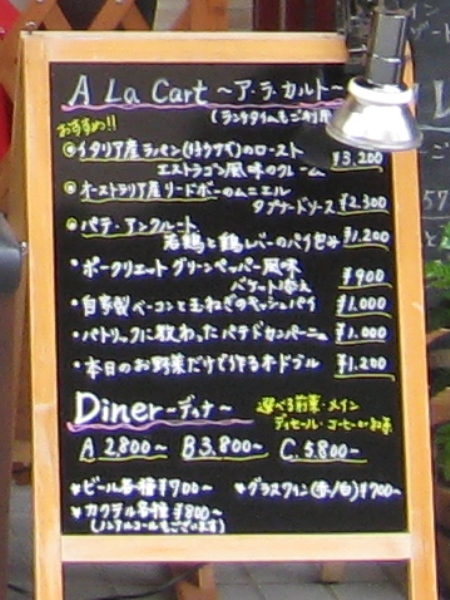 A La Cart ～ア・ラ・カルト～
(ランチタイムもご利用
おすすめ!!
◎イタリア産ラパン(仔ウサギ)のロースト
エストラゴン風味のクレーム ¥3,200
◎オーストラリア産リードボーのムニエル
タプナードソース ¥2,300
◎パテ・アンクルート
若鶏と鶏レバーのパイ包み ¥1,200
・ポークリエット グリーンペッパー風味
バケット添え ¥900
・自家製ベーコンと玉ねぎのキッシュパイ ¥1,000
・パトリックに教わったパテドカンパーニュ ¥1,000
・本日のお野菜だけで作るオードブル ¥1,200
Diner ～ディナー～
選べる前菜・メイン
デセール・コーヒーor紅茶
A 2,800～ B 3,800～ C. 5,800～
ビール各種¥700～
グラスワイン(赤/白)¥700～
カクテル各種¥800～
(ノンアルコールもございます)
57